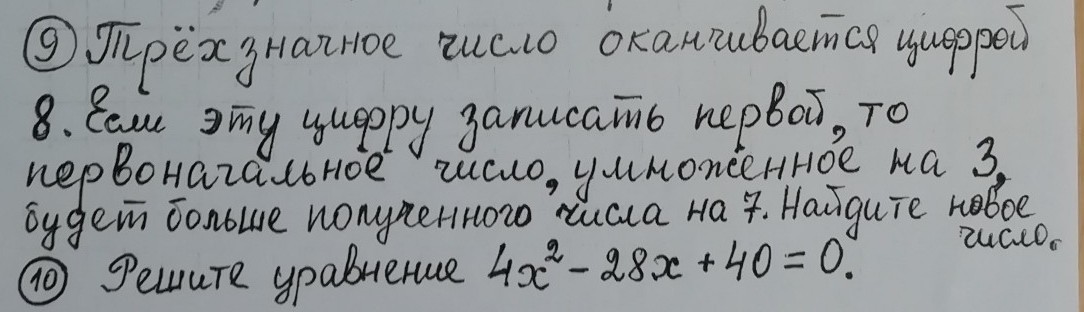 9 Трёхзначное число оканчивается цифрой
8. Если эту цифру записать первой, то
первоначальное число, умноженное на 3,
будет больше полученного числа на 7. Найдите новое
число.
10 Решите уравнение 4x² - 28x + 40 = 0.